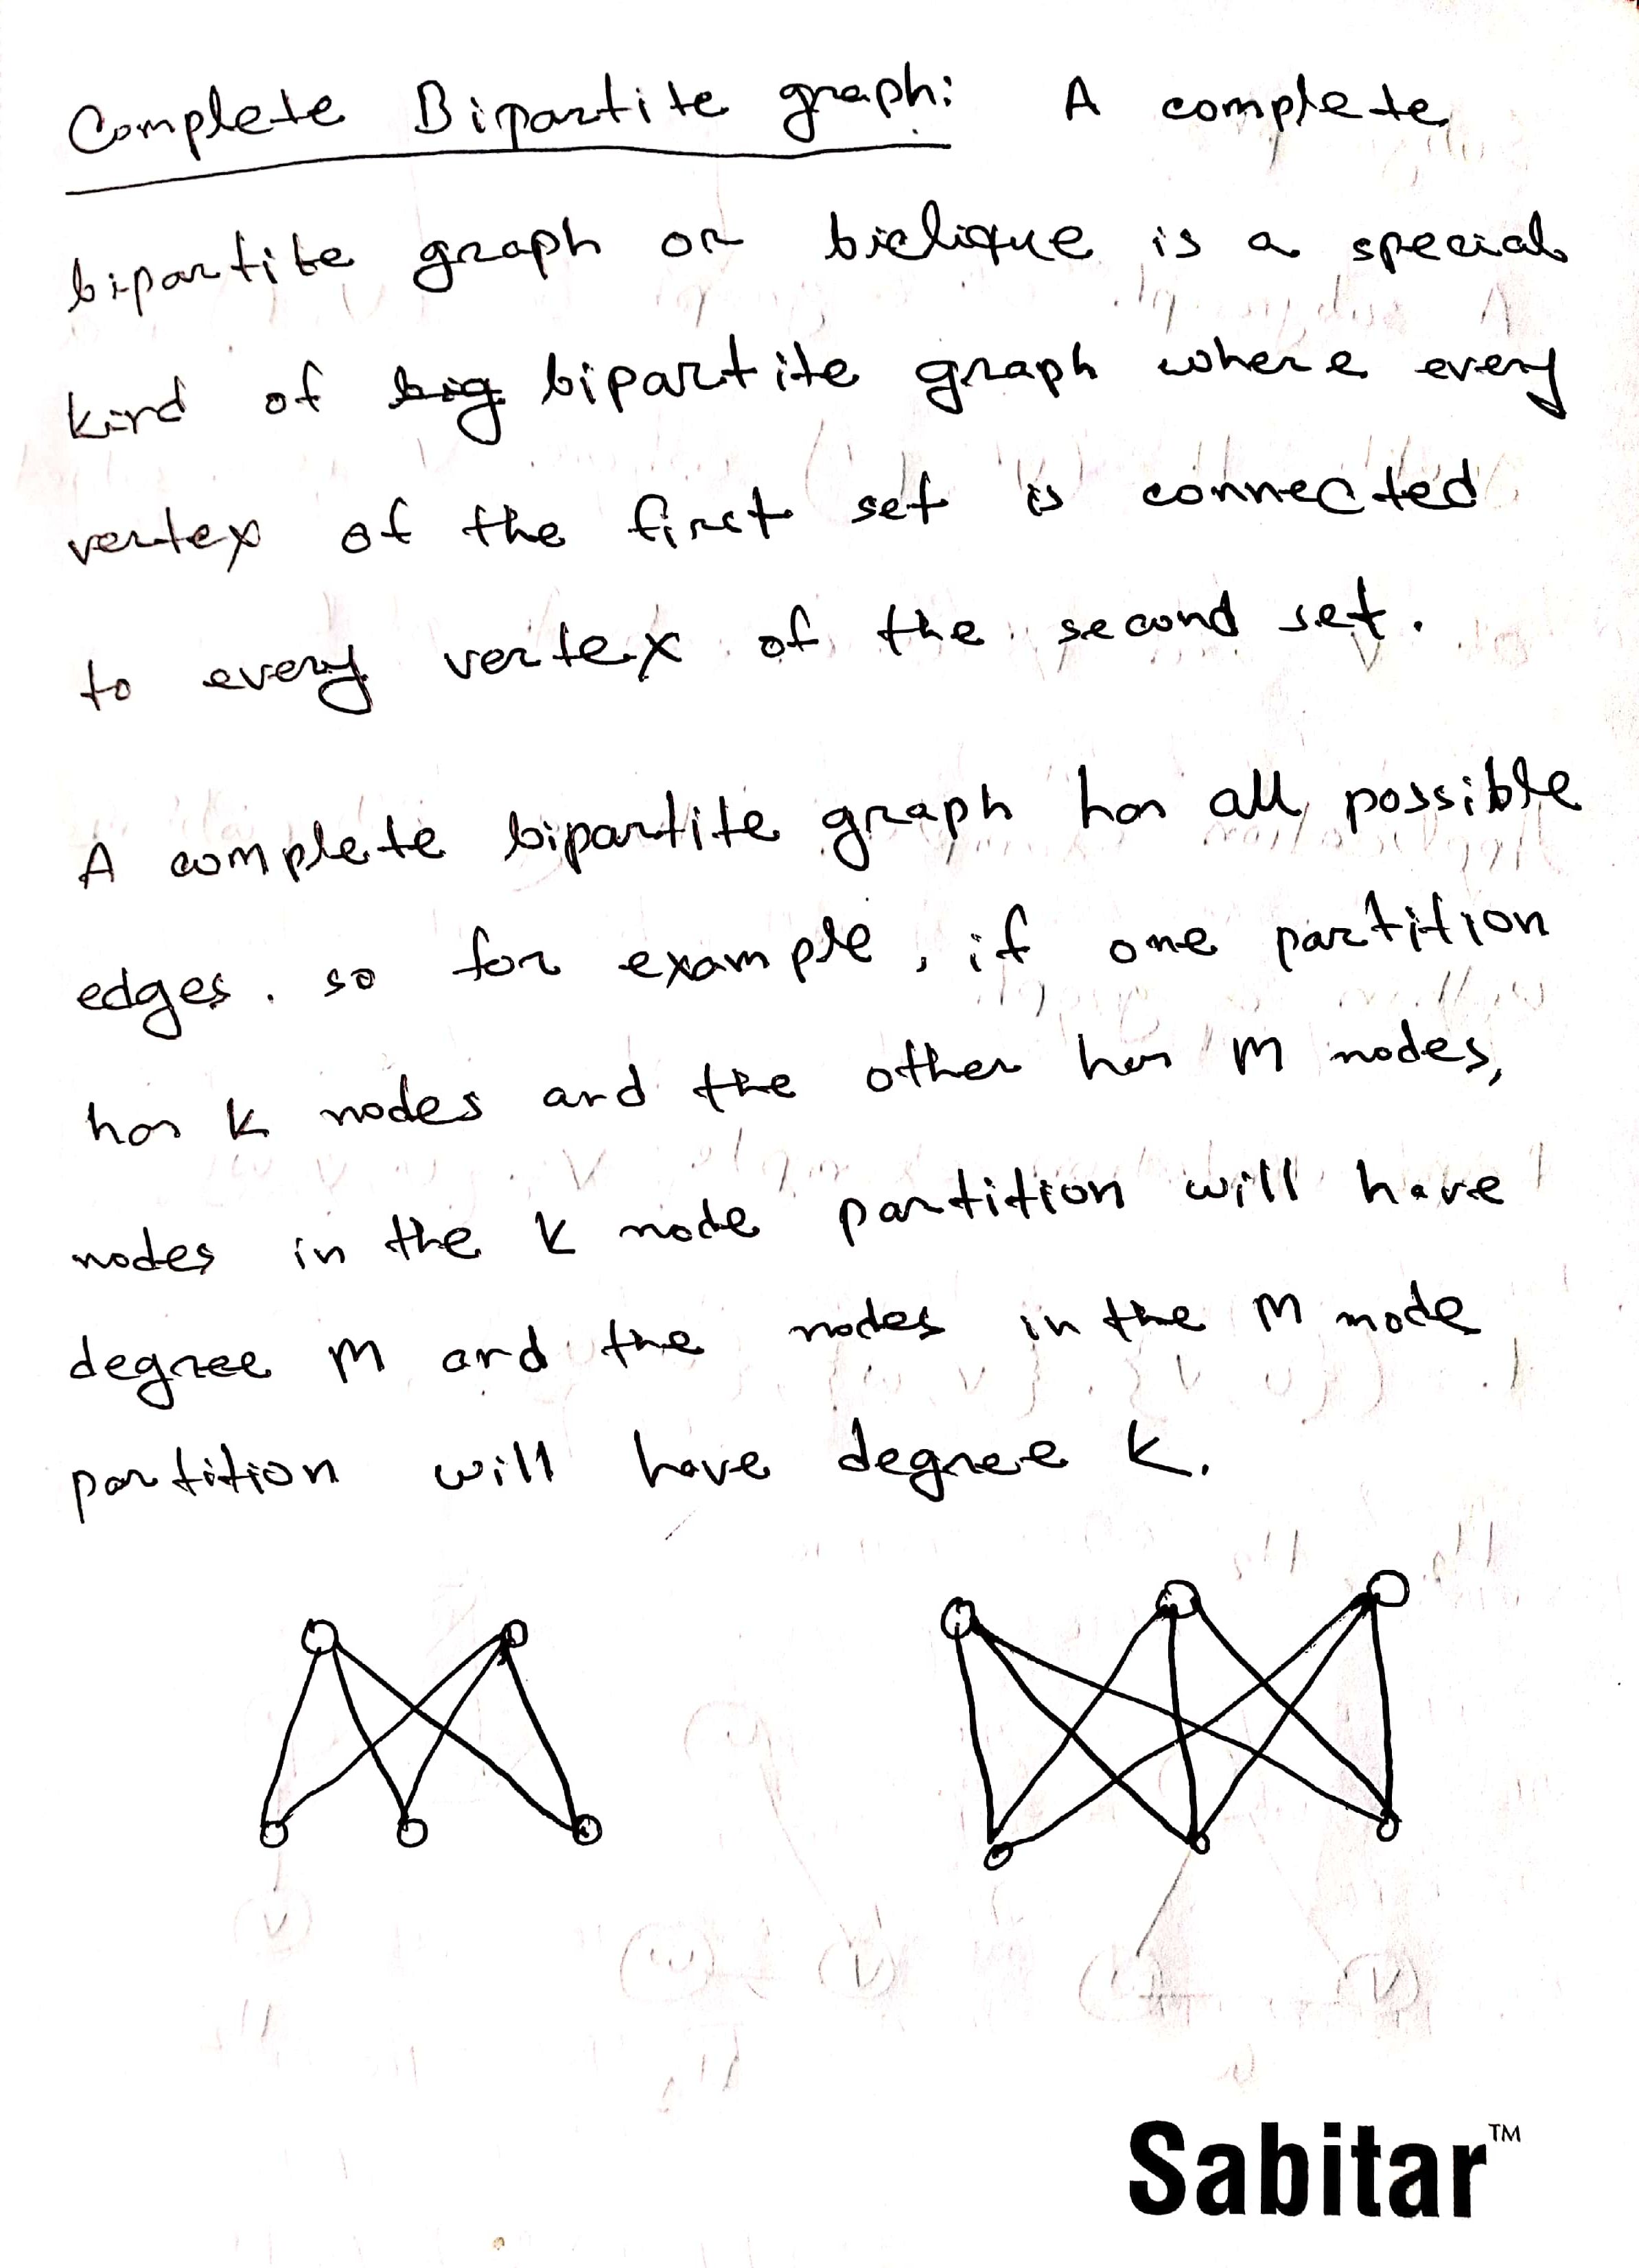 Complete Bipartite graph: A complete
bipartite graph or biclique is a special
kind of big bipartite graph where every
vertex of the first set is connected
to every vertex of the second set.
A complete bipartite graph has all possible
edges. so for example, if one partition
has K nodes and the other has M nodes,
nodes in the K node partition will have
degree M and the nodes in the M node
partition will have degree K.
Sabitar™